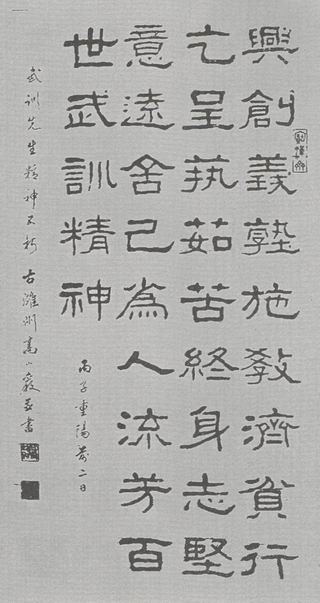 興創義塾施教濟貧行
乞呈執茹苦終身志堅
意遠舍己為人流芳百
世武訓精神
丙子重陽前二日
武訓先生精神不朽 古濰州高小巖書